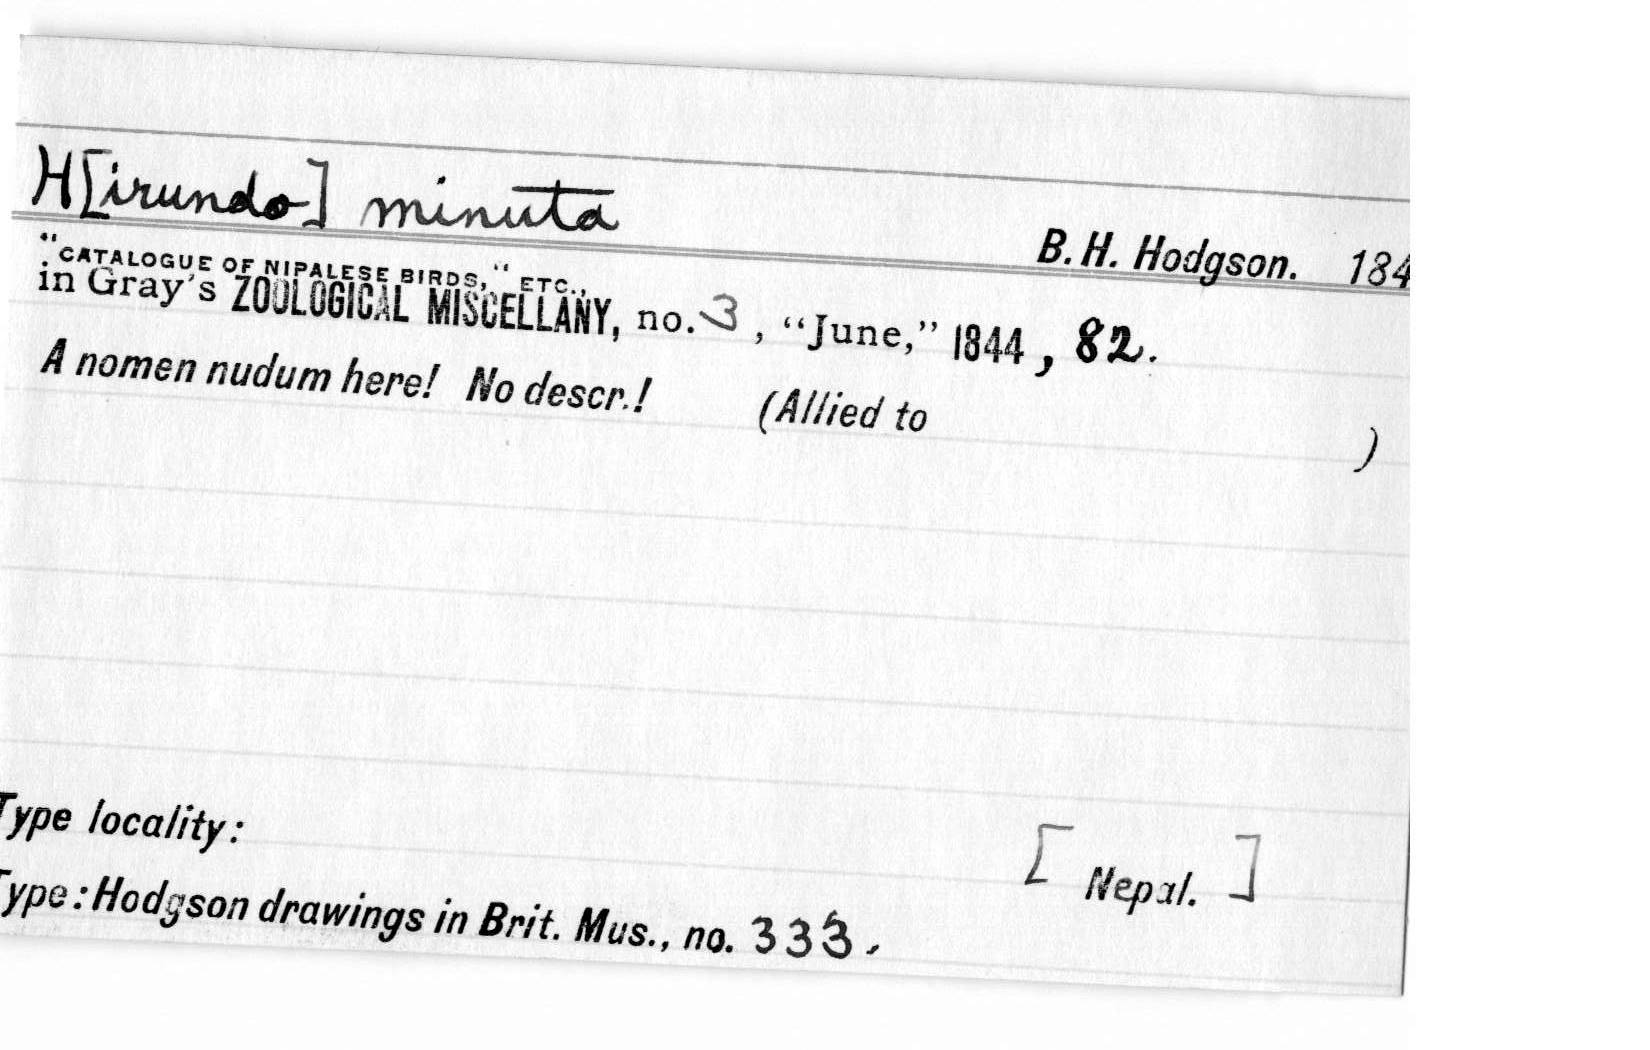 H[irundo] minuta
B. H. Hodgson. 184
"CATALOGUE OF NIPALESE BIRDS," ETC.,
in Gray's ZOOLOGICAL MISCELLANY, no. 3, "June," 1844, 82.
A nomen nudum here! No descr.! (Allied to )
Type locality: [Nepal.]
Type: Hodgson drawings in Brit. Mus., no. 333.